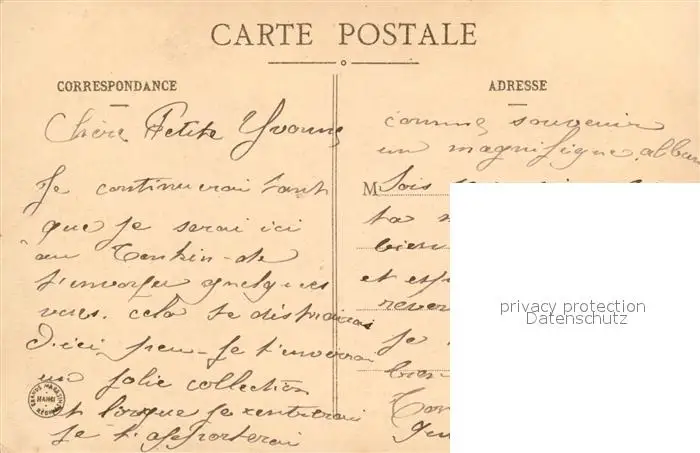 CARTE POSTALE
CORRESPONDANCE
ADRESSE
Chère Petite Yvonne
Je continuerai tant
que je serai ici
au Tonkin - de
t'envoyer quelques
vues. cela te distraira
D'ici peu - je t'enverrai
une jolie collection
et lorsque je rentrerai
je t'apporterai
comme souvenir
un magnifique album
M Sois
ta
bien
et
je
bien
GRANDS MAGASINS RÉUNIS
HANOI
privacy protection
Datenschutz